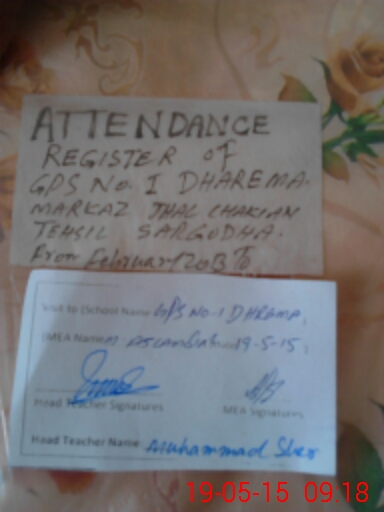 ATTENDANCE
REGISTER OF
GPS No. I DHAREMA.
MARKAZ JHAL CHAKIAN
TEHSIL SARGODHA.
From February 2013 To
Visit to (School Name GPS NO-1 DHREMA,
(MEA Name) 19-5-15,
Head Teacher Signatures
MEA Signatures
Head Teacher Name: Muhammad Sher
19-05-15 09:18